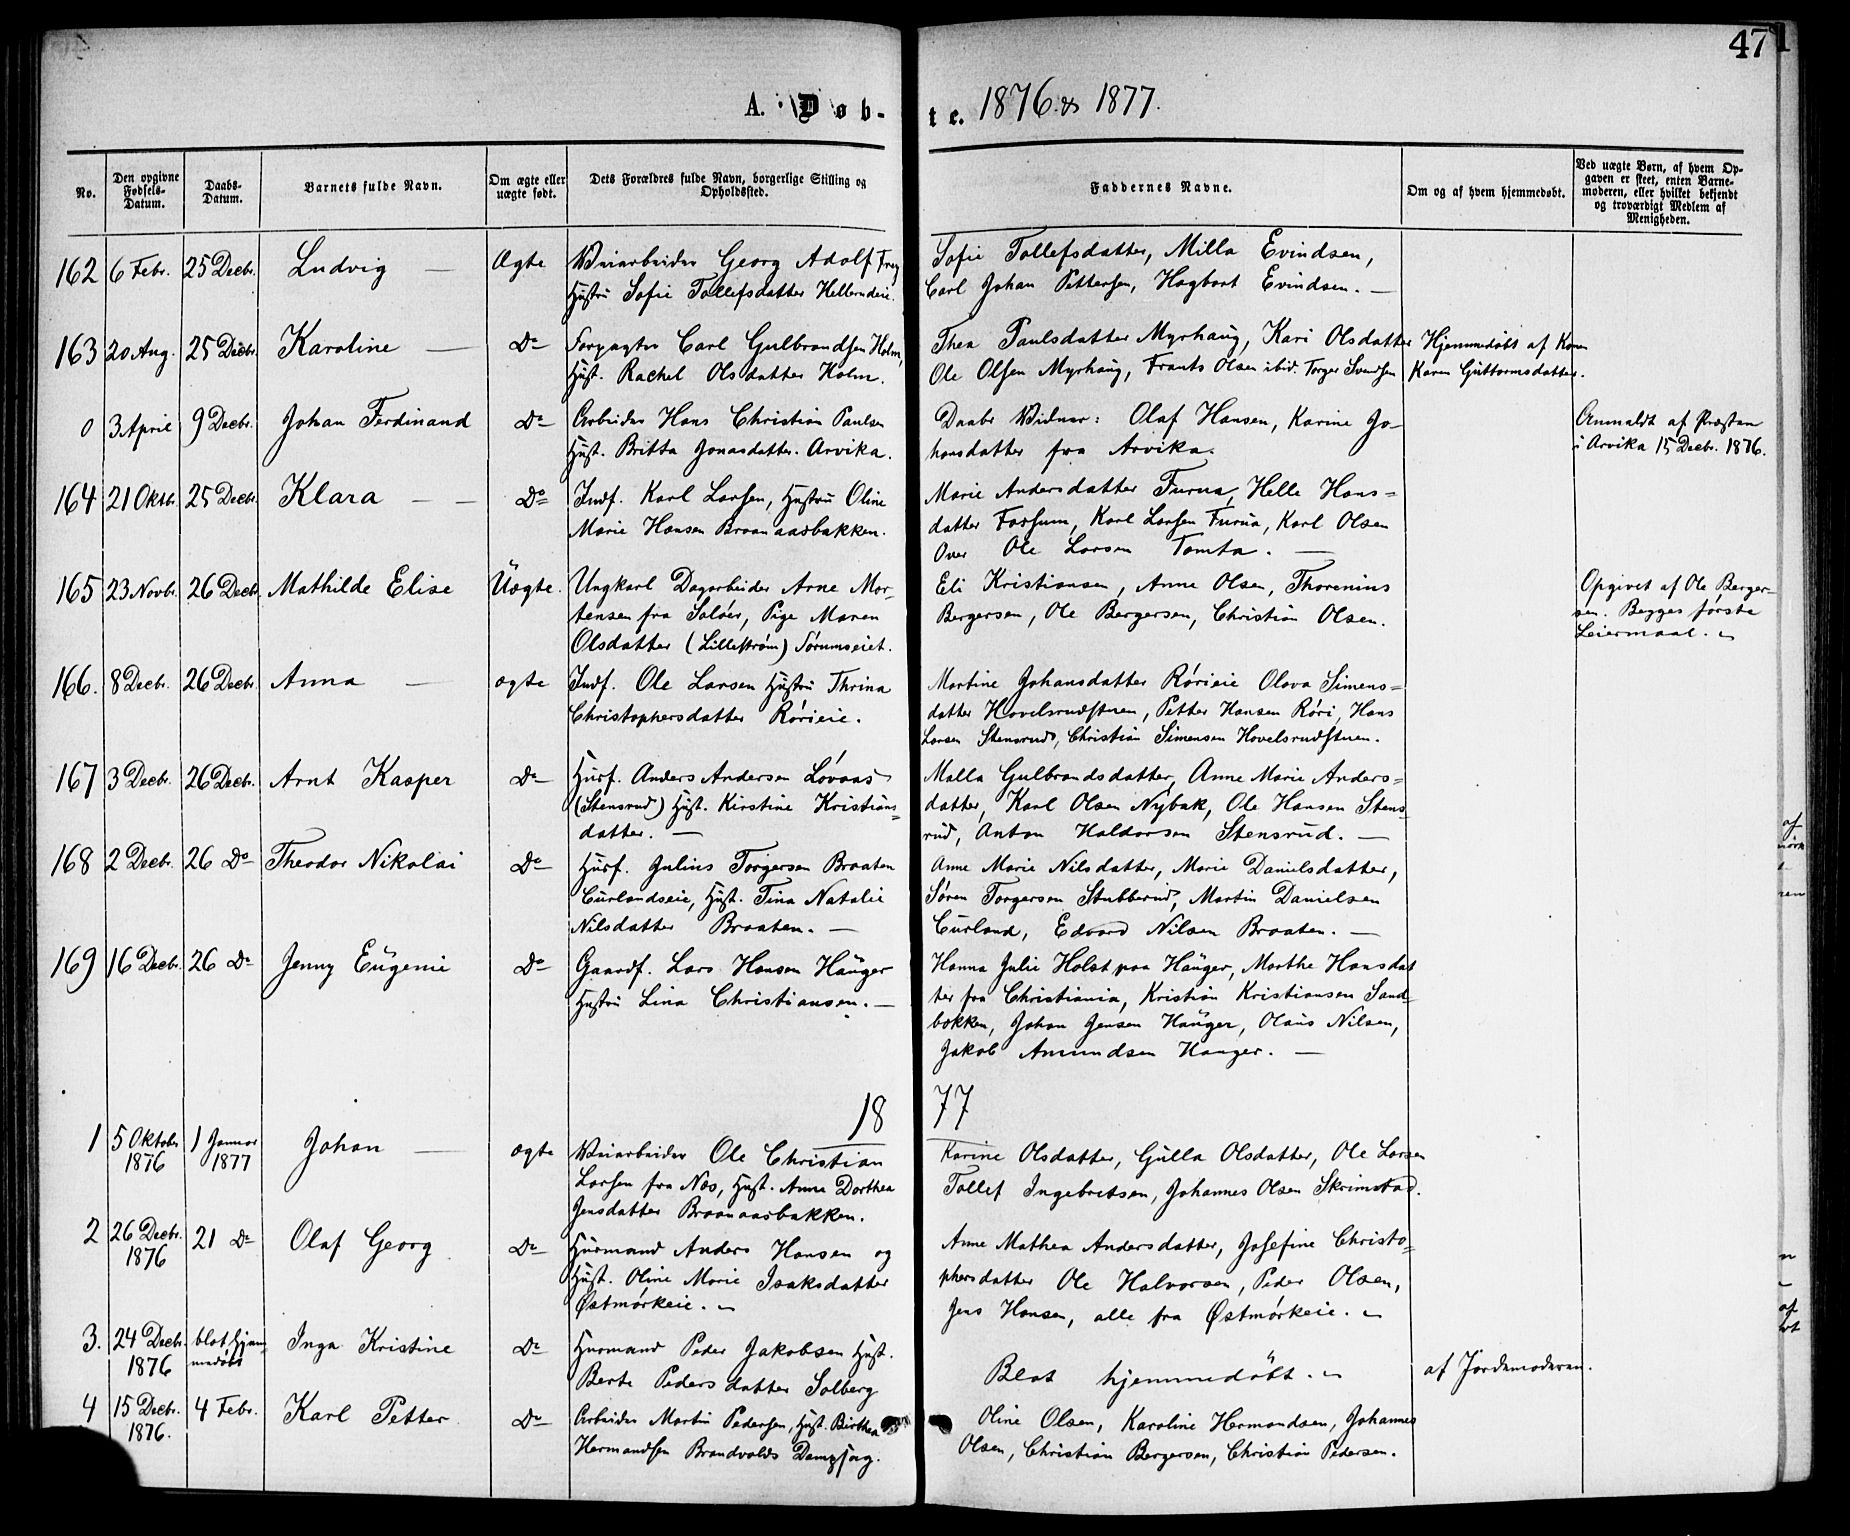 47
A. Døb-
te. 1876 & 1877.
No.
Den opgivne Fødsels-Datum.
Daabs-Datum.
Barnets fulde Navn.
Om ægte eller uægte født.
Dets Forældres fulde Navn, borgerlige Stilling og Opholdssted.
Faddernes Navne.
Om og af hvem hjemmedøbt.
Ved uægte Børn, af hvem Opgaven er skeet, enten Barnemoderen, eller hvilket bekjendt og troværdigt Medlem af Menigheden.
162 6 Febr. 25 Decbr. Ludvig — Ægte Veiarbeider Georg Adolf Frey
Hustru Sofie Tollefsdatter Hellerudeie.
Sofie Tollefsdatter, Milla Evindsen,
Carl Johan Pettersen, Hagbart Evindsen. —
163 20 Aug. 25 Decbr. Karoline — Do Forpagter Carl Gulbrandsen Holm,
Hust. Rachel Olsdatter Holm.
Thea Paulsdatter Myrhaug, Kari Olsdatter
Ole Olsen Myrhaug, Frants Olsen ibid. Torger Svendsen
Hjemmedøbt af Konen
Karen Guttormsdatter.
0 3 April 9 Decbr. Johan Ferdinand Do Arbeider Hans Christian Paulsen
Hust. Britta Jonasdatter. Arvika.
Daabs Vidner: Olaf Hansen, Karine Jo-
hansdatter fra Arvika.
Anmeldt af Præsten
i Arvika 15 Decbr. 1876.
164 21 Oktbr. 25 Decbr. Klara — — Do Indf. Karl Larsen, Hustru Oline
Marie Hansen Braanaasbakken.
Marie Andersdatter Furua, Helle Hans=
datter Fossum, Karl Larsen Furua, Karl Olsen
Over Ole Larsen Tomta. —
165 23 Novbr. 26 Decbr. Mathilde Elise Uægte. Ungkarl Dagarbeider Arne Mor-
tensen fra Soløer, Pige Maren
Olsdatter (Lillestrøm) Sørumseiet.
Eli Kristiansen, Anne Olsen, Thorenius
Bergersen, Ole Bergersen, Christian Olsen.
Opgivet af Ole Berger-
sen. Begges første
Leiermaal.
166. 8 Decbr. 26 Decbr. Anna — ægte Indf. Ole Larsen Hustru Thrina
Christophersdatter Rørieie.
Martine Johansdatter Rørieie Olava Simens=
datter Hovelsrudstuen, Petter Hansen Røri, Hans
Larsen Stensrud, Christian Simensen Hovelsrudstuen.
167 3 Decbr. 26 Decbr. Arnt Kasper Do Husf. Anders Andersen Løvaas
(Stensrud) Hust. Kirstine Kristians=
datter. —
Malla Gulbrandsdatter, Anne Marie Anders=
datter, Karl Olsen Nybak, Ole Hansen Stens-
rud, Anton Haldorsen Stensrud. —
168 2 Decbr. 26 Do Theodor Nikolai Do Husf. Julius Torgersen Braaten
Curlandseie, Hust. Tina Natalie
Nilsdatter Braaten. —
Anne Marie Nilsdatter, Marie Danielsdatter,
Søren Torgersen Stubberud, Martin Danielsen
Curland, Edvard Nilsen Braaten. —
169 16 Decbr. 26 Do Jenny Eugenie Do Gaardf. Lars Hansen Hauger
Hustru Lina Christiansen. —
Hanna Julie Holst paa Hauger, Marthe Hansdat
ter fra Christiania, Kristian Kristiansen Sand-
bakken, Johan Jensen Hauger, Olaus Nilsen,
Jakob Amundsen Hauger. —
18 77
1 5 Oktober 1876 1 Januar 1877 Johan — ægte Veiarbeider Ole Christian
Larsen fra Næs, Hust. Anne Dorthea
Jensdatter Braanaasbakken.
Karine Olsdatter, Gulla Olsdatter, Ole Larsen
Tollef Ingebretsen, Johannes Olsen Skrimstad.
2 26 Decbr. 1876 21 Do Olaf Georg Do Husmand Anders Hansen og
Hust. Oline Marie Isaksdatter
Østmørkeie.
Anne Mathea Andersdatter, Josefine Christo=
phersdatter Ole Halvorsen, Peder Olsen,
Jens Hansen, alle fra Østmørkeie.
3. 24 Decbr. 1876 blot hjem-
medøbt Inga Kristine Do Husmand Peder Jakobsen Hust.
Berte Pedersdatter Solberg
Blot hjemmedøbt.
af Jordemoderen.
4 15 Decbr. 1876. 4 Febr. Karl Petter Do Arbeider Martin Pedersen, Hust. Birthea
Hermandsen Brandvolds Dampsag.
Oline Olsen, Karoline Hermandsen, Johannes
Olsen, Christian Bergersen, Christian Pedersen.